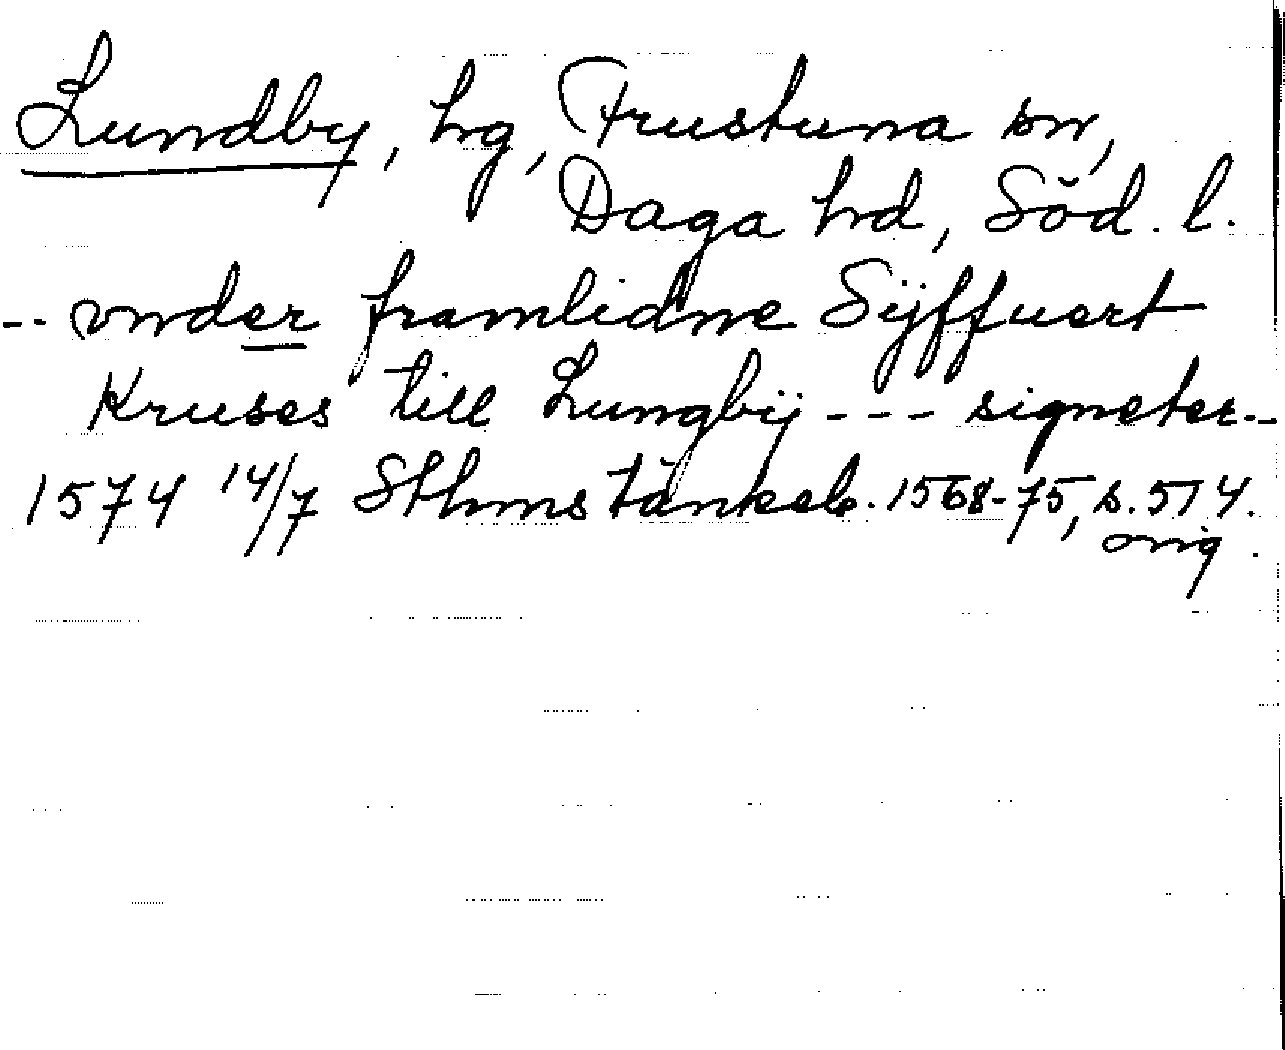 Lundby, hg, Frustuna sn,
Daga hd, Söd. l.
-- vnder framlidne Sijffuert
Kruses till Lungbij --- signeter--
1574 14/7 Sthms tänkeb. 1568-75, s. 514.
orig.